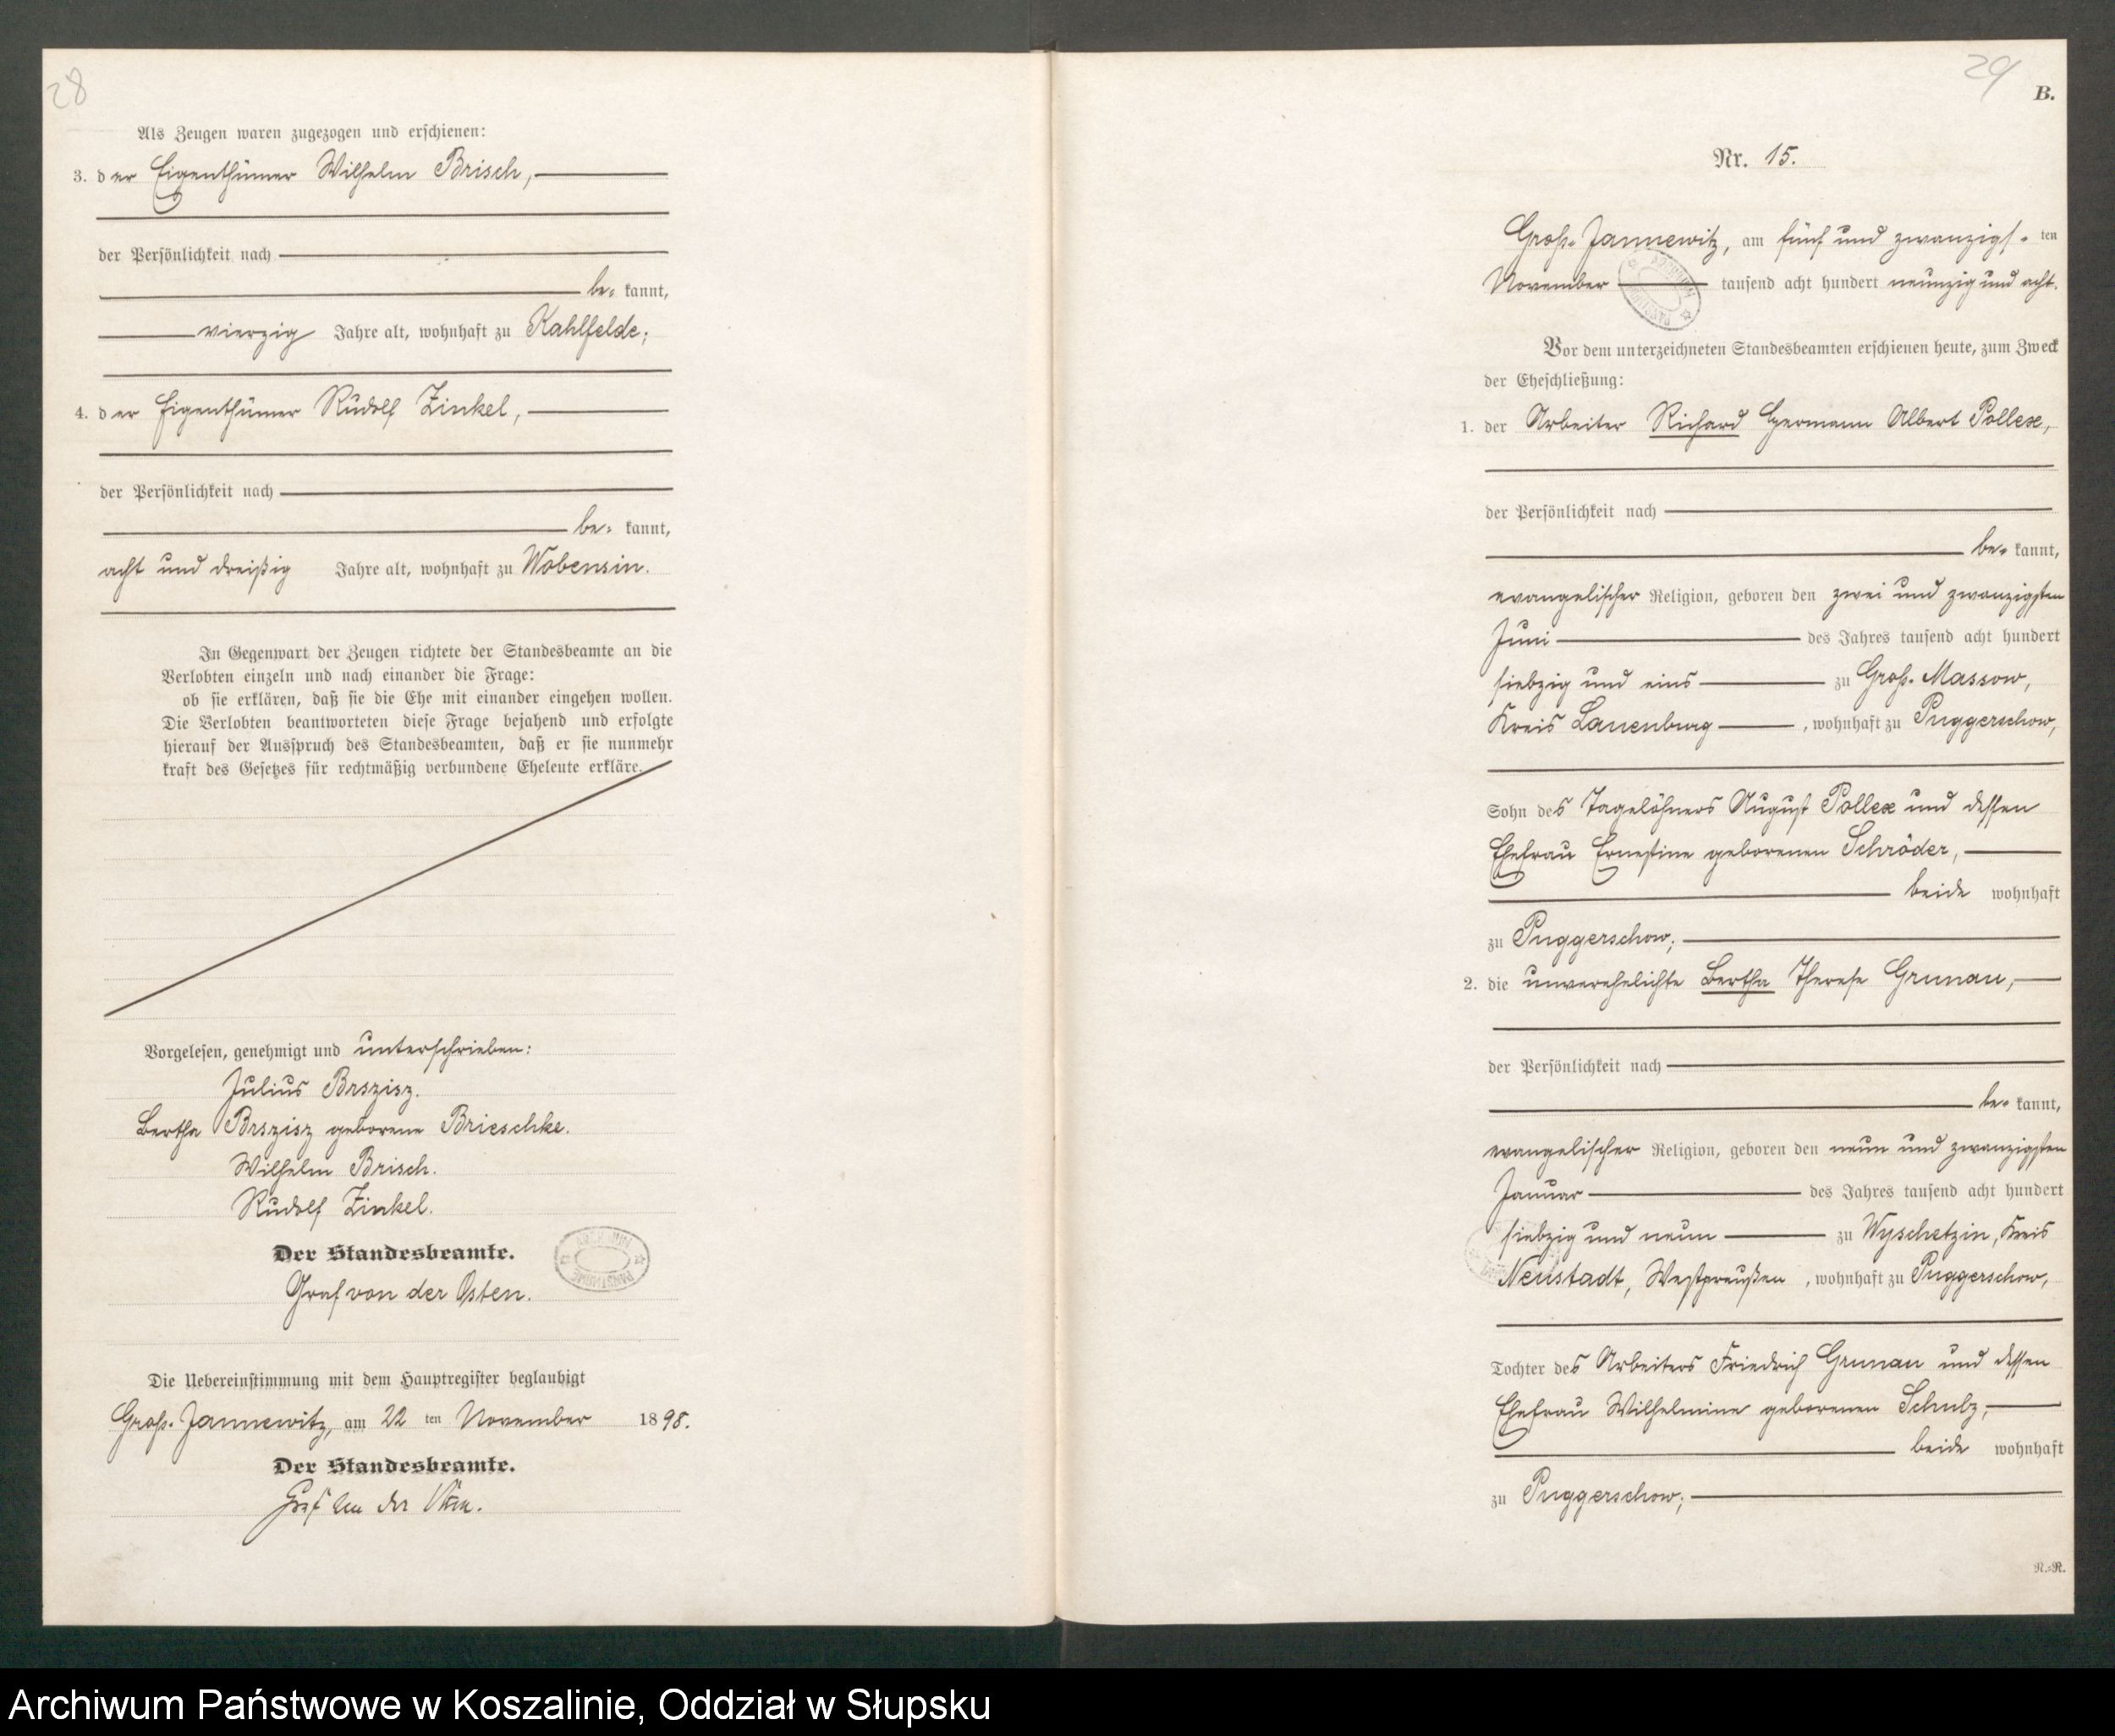 28
Als Zeugen waren zugezogen und erschienen:
3. der Eigenthümer Wilhelm Brisch,
der Persönlichkeit nach
be= kannt,
vierzig Jahre alt, wohnhaft zu Kahlfelde;
4. der Eigenthümer Rudolf Zinkel,
der Persönlichkeit nach
be= kannt,
acht und dreißig Jahre alt, wohnhaft zu Wobensin.
In Gegenwart der Zeugen richtete der Standesbeamte an die
Verlobten einzeln und nach einander die Frage:
ob sie erklären, daß sie die Ehe mit einander eingehen wollen.
Die Verlobten beantworteten diese Frage bejahend und erfolgte
hierauf der Ausspruch des Standesbeamten, daß er sie nunmehr
kraft des Gesetzes für rechtmäßig verbundene Eheleute erkläre.
Vorgelesen, genehmigt und unterschrieben:
Julius Brszisz.
Bertha Brszisz geborene Brieschke.
Wilhelm Brisch.
Rudolf Zinkel.
Der Standesbeamte.
Graf von der Osten.
Die Uebereinstimmung mit dem Hauptregister beglaubigt
Groß-Jannewitz, am 22 ten November 1898.
Der Standesbeamte.
Graf von der Osten.
29
B.
Nr. 15.
Groß-Jannewitz, am fünf und zwanzigs=ten
November tausend acht hundert neunzig und acht.
Vor dem unterzeichneten Standesbeamten erschienen heute, zum Zweck
der Eheschließung:
1. der Arbeiter Richard Hermann Albert Pollex,
der Persönlichkeit nach
be= kannt,
evangelischer Religion, geboren den zwei und zwanzigsten
Juni des Jahres tausend acht hundert
siebzig und eins zu Groß-Massow,
Kreis Lauenburg, wohnhaft zu Puggerschow,
Sohn des Tagelöhners August Pollex und dessen
Ehefrau Ernestine geborenen Schröder,
beide wohnhaft
zu Puggerschow;
2. die unverehelichte Bertha Therese Grunau,
der Persönlichkeit nach
be= kannt,
evangelischer Religion, geboren den neun und zwanzigsten
Januar des Jahres tausend acht hundert
siebzig und neun zu Wyschetzin, Kreis
Neustadt, Westpreußen, wohnhaft zu Puggerschow,
Tochter des Arbeiters Friedrich Grunau und dessen
Ehefrau Wilhelmine geborenen Schulz,
beide wohnhaft
zu Puggerschow;
R.=R.
Archiwum Państwowe w Koszalinie, Oddział w Słupsku